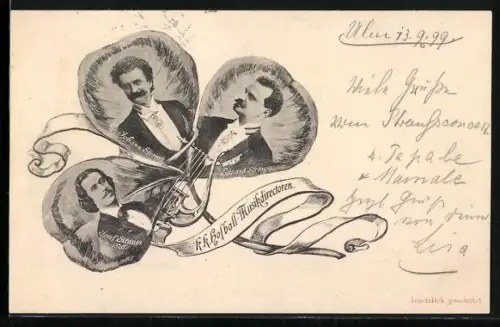 Ulm 13.9.99.
Viele Grüße
vom Straussconcert
Papa
Mama
Gruß
von
Lisa
Johann Strauss
Eduard Strauss
Josef Strauss
k.k. Hofball-Musikdirectoren.
Gesetzlich geschützt